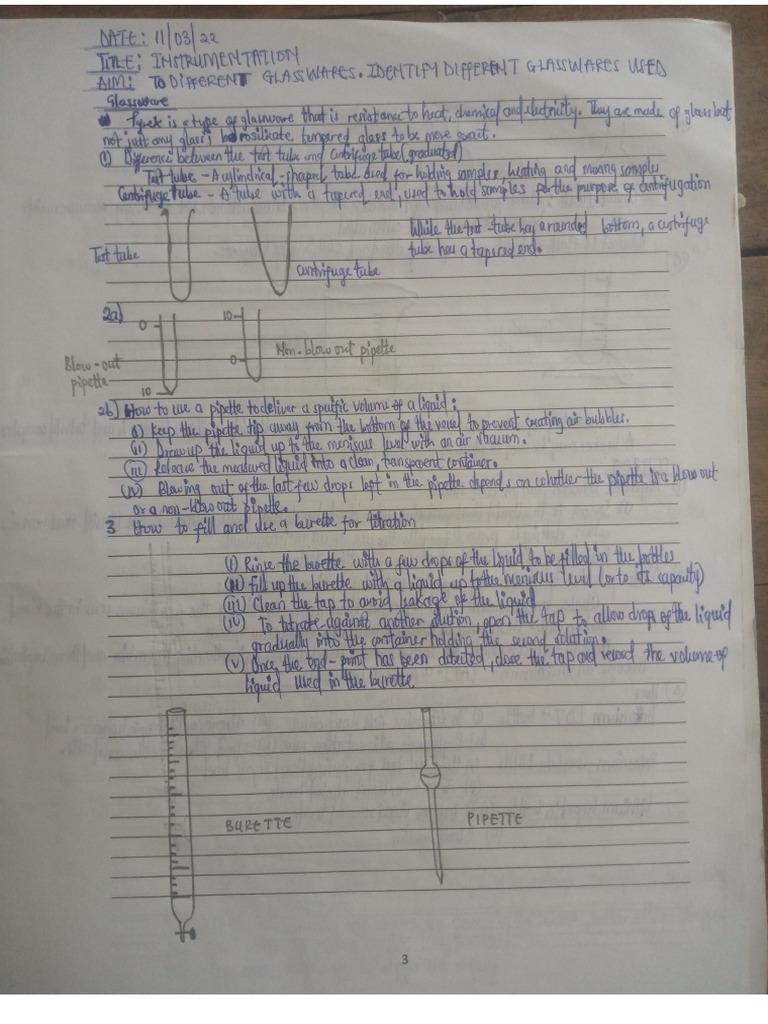 DATE: 11/03/22
TITLE: INSTRUMENTATION
AIM: TO DIFFERENT GLASSWARES. IDENTIFY DIFFERENT GLASSWARES USED
Glassware
Pyrex is a type of glassware that is resistance to heat, chemical and electricity. They are made of glass but
not just any glass; borosilicate tempered glass to be more exact.
(1) Difference between the test tube and centrifuge tube (graduated)
Test tube - A cylindrical-shaped tube used for holding samples, heating and mixing samples
Centrifuge tube - A tube with a tapered end, used to hold samples for the purpose of centrifugation
While the test-tube has a rounded bottom, a centrifuge
tube has a tapered end.
Test tube
Centrifuge tube
2a)
0
10
Non-blow out pipette
Blow-out
pipette
0
10
2b) How to use a pipette to deliver a specific volume of a liquid:
(i) Keep the pipette tip away from the bottom of the vessel to prevent creating air bubbles.
(ii) Draw up the liquid up to the meniscus level with an air vacuum.
(iii) Release the measured liquid into a clean, transparent container.
(iv) Blowing out of the last few drops left in the pipette depends on whether the pipette is a blow out
or a non-blow out pipette.
3 How to fill and use a burette for titration
(i) Rinse the burette with a few drops of the liquid to be filled in the bottles
(ii) Fill up the burette with a liquid up to the meniscus level (or to its capacity)
(iii) Clean the tap to avoid leakage of the liquid
(iv) To titrate against another solution, open the tap to allow drops of the liquid
gradually into the container holding the second solution.
(v) Once the end-point has been detected, close the tap and record the volume of
liquid used in the burette
BURETTE
PIPETTE
3